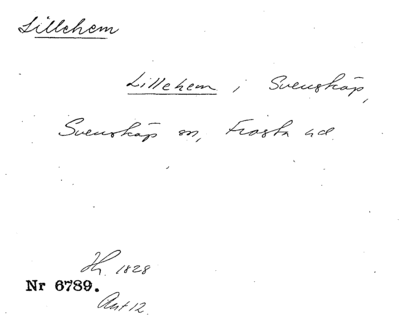 Lillehem
Lillehem i Svensköp,
Svensköp sn, Frosta hd.
Hf. 1828
Nr 6789.
Ant 12.